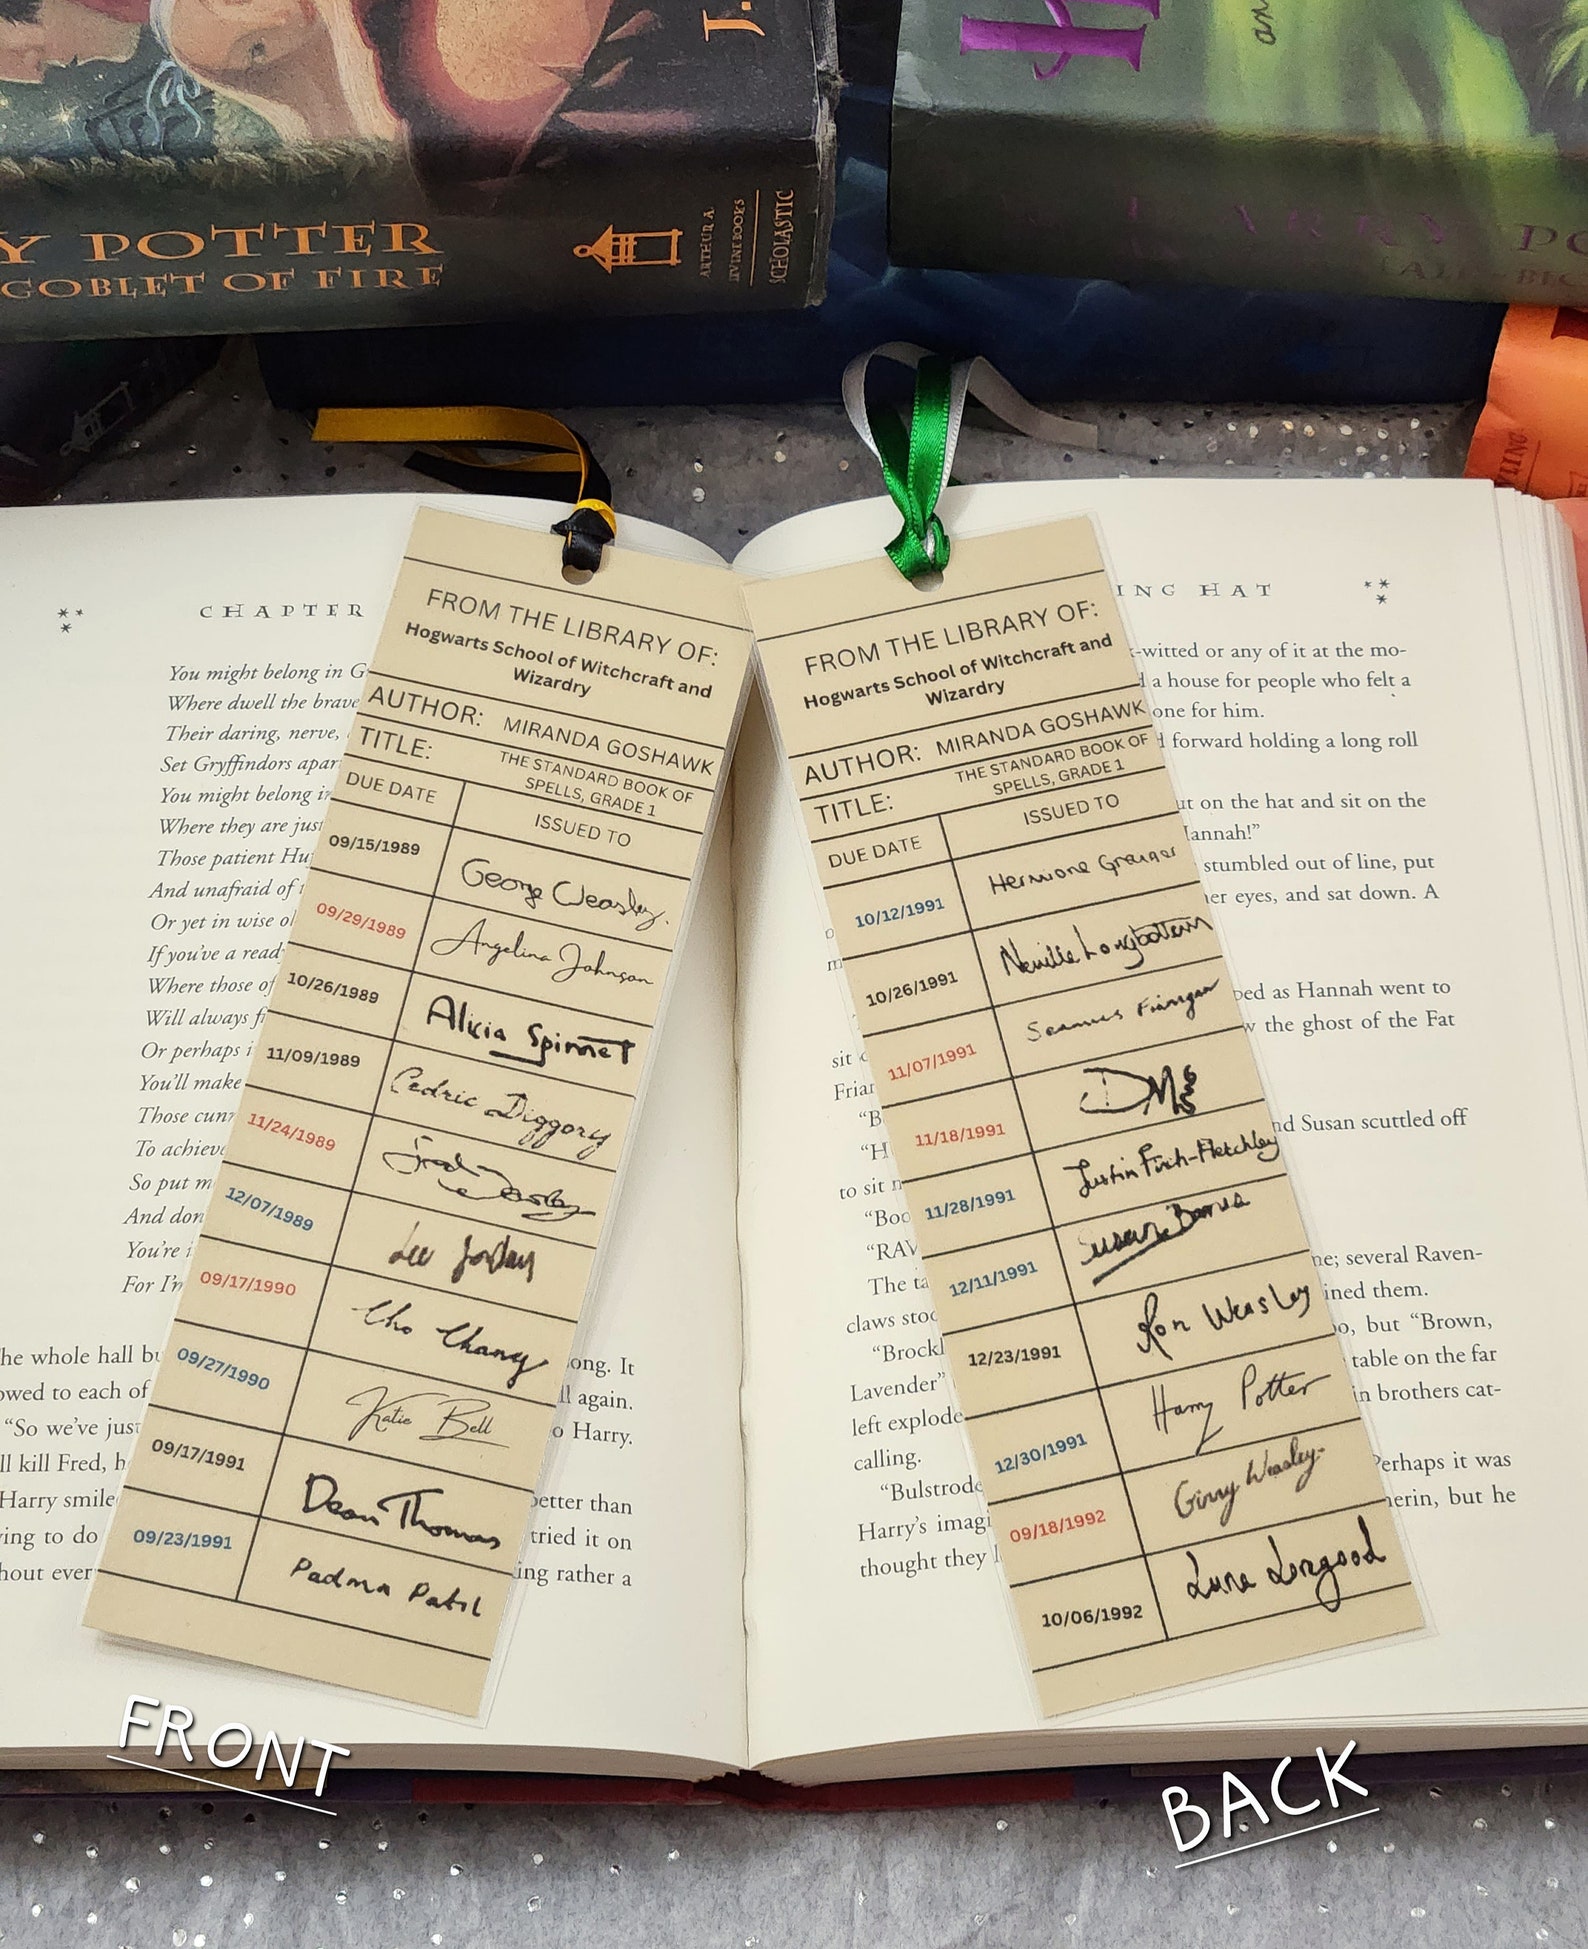 J.
Y POTTER
GOBLET OF FIRE
ARTHUR A.
LEVINE BOOKS
SCHOLASTIC
an
ARRY PO
CHAPTER
You might belong in G
Where dwell the brave
Their daring, nerve,
Set Gryffindors apar
You might belong in
Where they are just
Those patient Hu
And unafraid of t
Or yet in wise ol
If you've a read
Where those of
Will always fi
Or perhaps i
You'll make
Those cunn
To achieve
So put m
And don
You're i
For I'm
he whole hall bu
ong. It
owed to each of
ll again.
"So we've just
o Harry.
ll kill Fred, h
Harry smile
better than
ying to do
tried it on
hout ever
ing rather a
FROM THE LIBRARY OF:
Hogwarts School of Witchcraft and
Wizardry
AUTHOR: MIRANDA GOSHAWK
TITLE: THE STANDARD BOOK OF
SPELLS, GRADE 1
DUE DATE ISSUED TO
09/15/1989 George Weasley.
09/29/1989 Angelina Johnson
10/26/1989 Alicia Spinnet
11/09/1989 Cedric Diggory
11/24/1989 Fred Weasley
12/07/1989 Lee Jordan
09/17/1990 Cho Chang
09/27/1990 Katie Bell
09/17/1991 Dean Thomas
09/23/1991 Padma Patil
FROM THE LIBRARY OF:
Hogwarts School of Witchcraft and
Wizardry
AUTHOR: MIRANDA GOSHAWK
TITLE: THE STANDARD BOOK OF
SPELLS, GRADE 1
DUE DATE ISSUED TO
10/12/1991 Hermione Granger
10/26/1991 Neville Longbottom
11/07/1991 Seamus Finnigan
11/18/1991 DM
11/28/1991 Justin Finch-Fletchley
12/11/1991 Susan Bones
12/23/1991 Ron Weasley
12/30/1991 Harry Potter
09/18/1992 Ginny Weasley
10/06/1992 Luna Lovegood
ING HAT
-witted or any of it at the mo-
d a house for people who felt a
one for him.
d forward holding a long roll
ut on the hat and sit on the
Hannah!"
stumbled out of line, put
her eyes, and sat down. A
ped as Hannah went to
sit
w the ghost of the Fat
Friar
"B
nd Susan scuttled off
"H
to sit n
"Boo
"RAV
ne; several Raven-
The ta
ined them.
claws stoo
oo, but "Brown,
"Brockl
table on the far
Lavender"
in brothers cat-
left explode
calling.
Perhaps it was
"Bulstrode
herin, but he
Harry's imagi
thought they l
FRONT
BACK